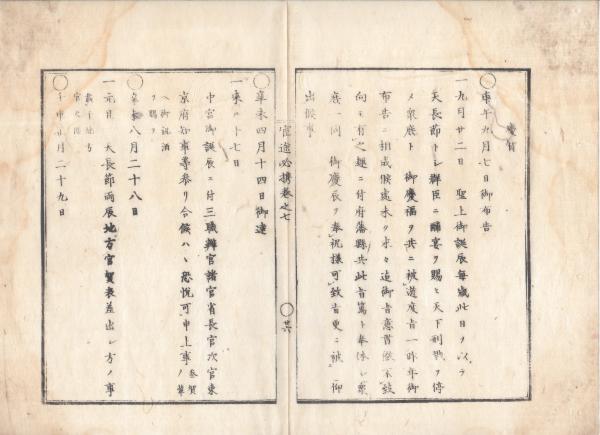 慶賀
○庚午九月七日御布告
一九月廿二日 聖上御誕辰毎歳此日ヲ以テ
天長節トシ群臣ニ酺宴ヲ賜ヒ天下刑戮ヲ停
メ衆庶ト 御慶福ヲ共ニ被遊度旨一昨年御
布告ニ相成候處未タ
向モ有之趣ニ付府藩縣共此旨篤ト奉体シ衆
庶一同 御慶辰ヲ奉祝様可致旨更ニ被 仰
出候事
官途必携巻之七
○廿六
○辛未四月十四日御達
一来ル十七日
中宮御誕辰ニ付三職辨官諸官省長官次官東
京府知事等参り合候ハヽ恐悦可申上事
参賀ノ輩
ヘ御祝酒
ヲ賜フ
○辛未八月二十八日
一元日 天長節両辰地方官賀表差出シ方ノ事
○壬申 月二十九日